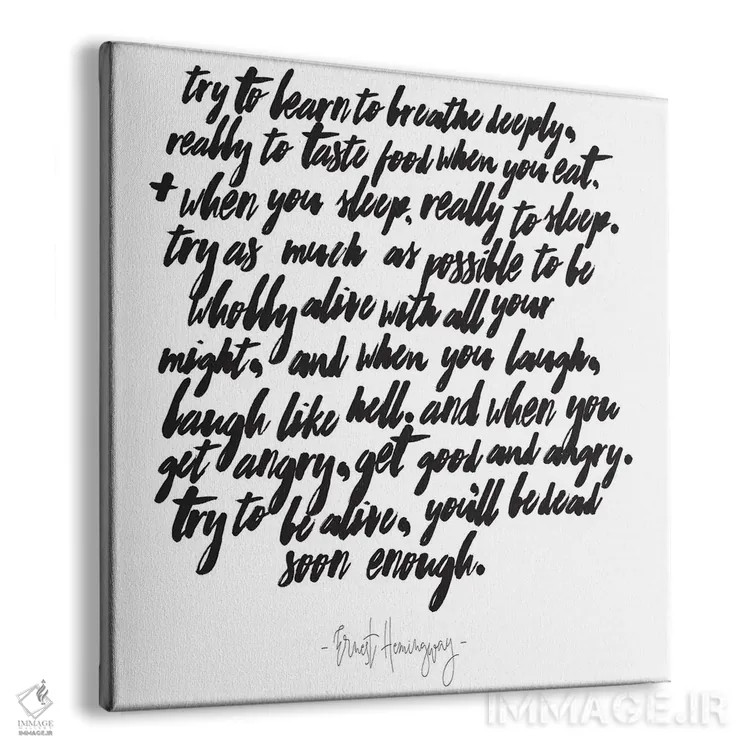 try to learn to breathe deeply,
really to taste food when you eat,
+ when you sleep, really to sleep.
try as much as possible to be
wholly alive with all your
might, and when you laugh,
laugh like hell. and when you
get angry, get good and angry.
try to be alive, you'll be dead
soon enough.
- Ernest Hemingway -
IMMAGE
IMMAGE.IR
IMMAGE.IR